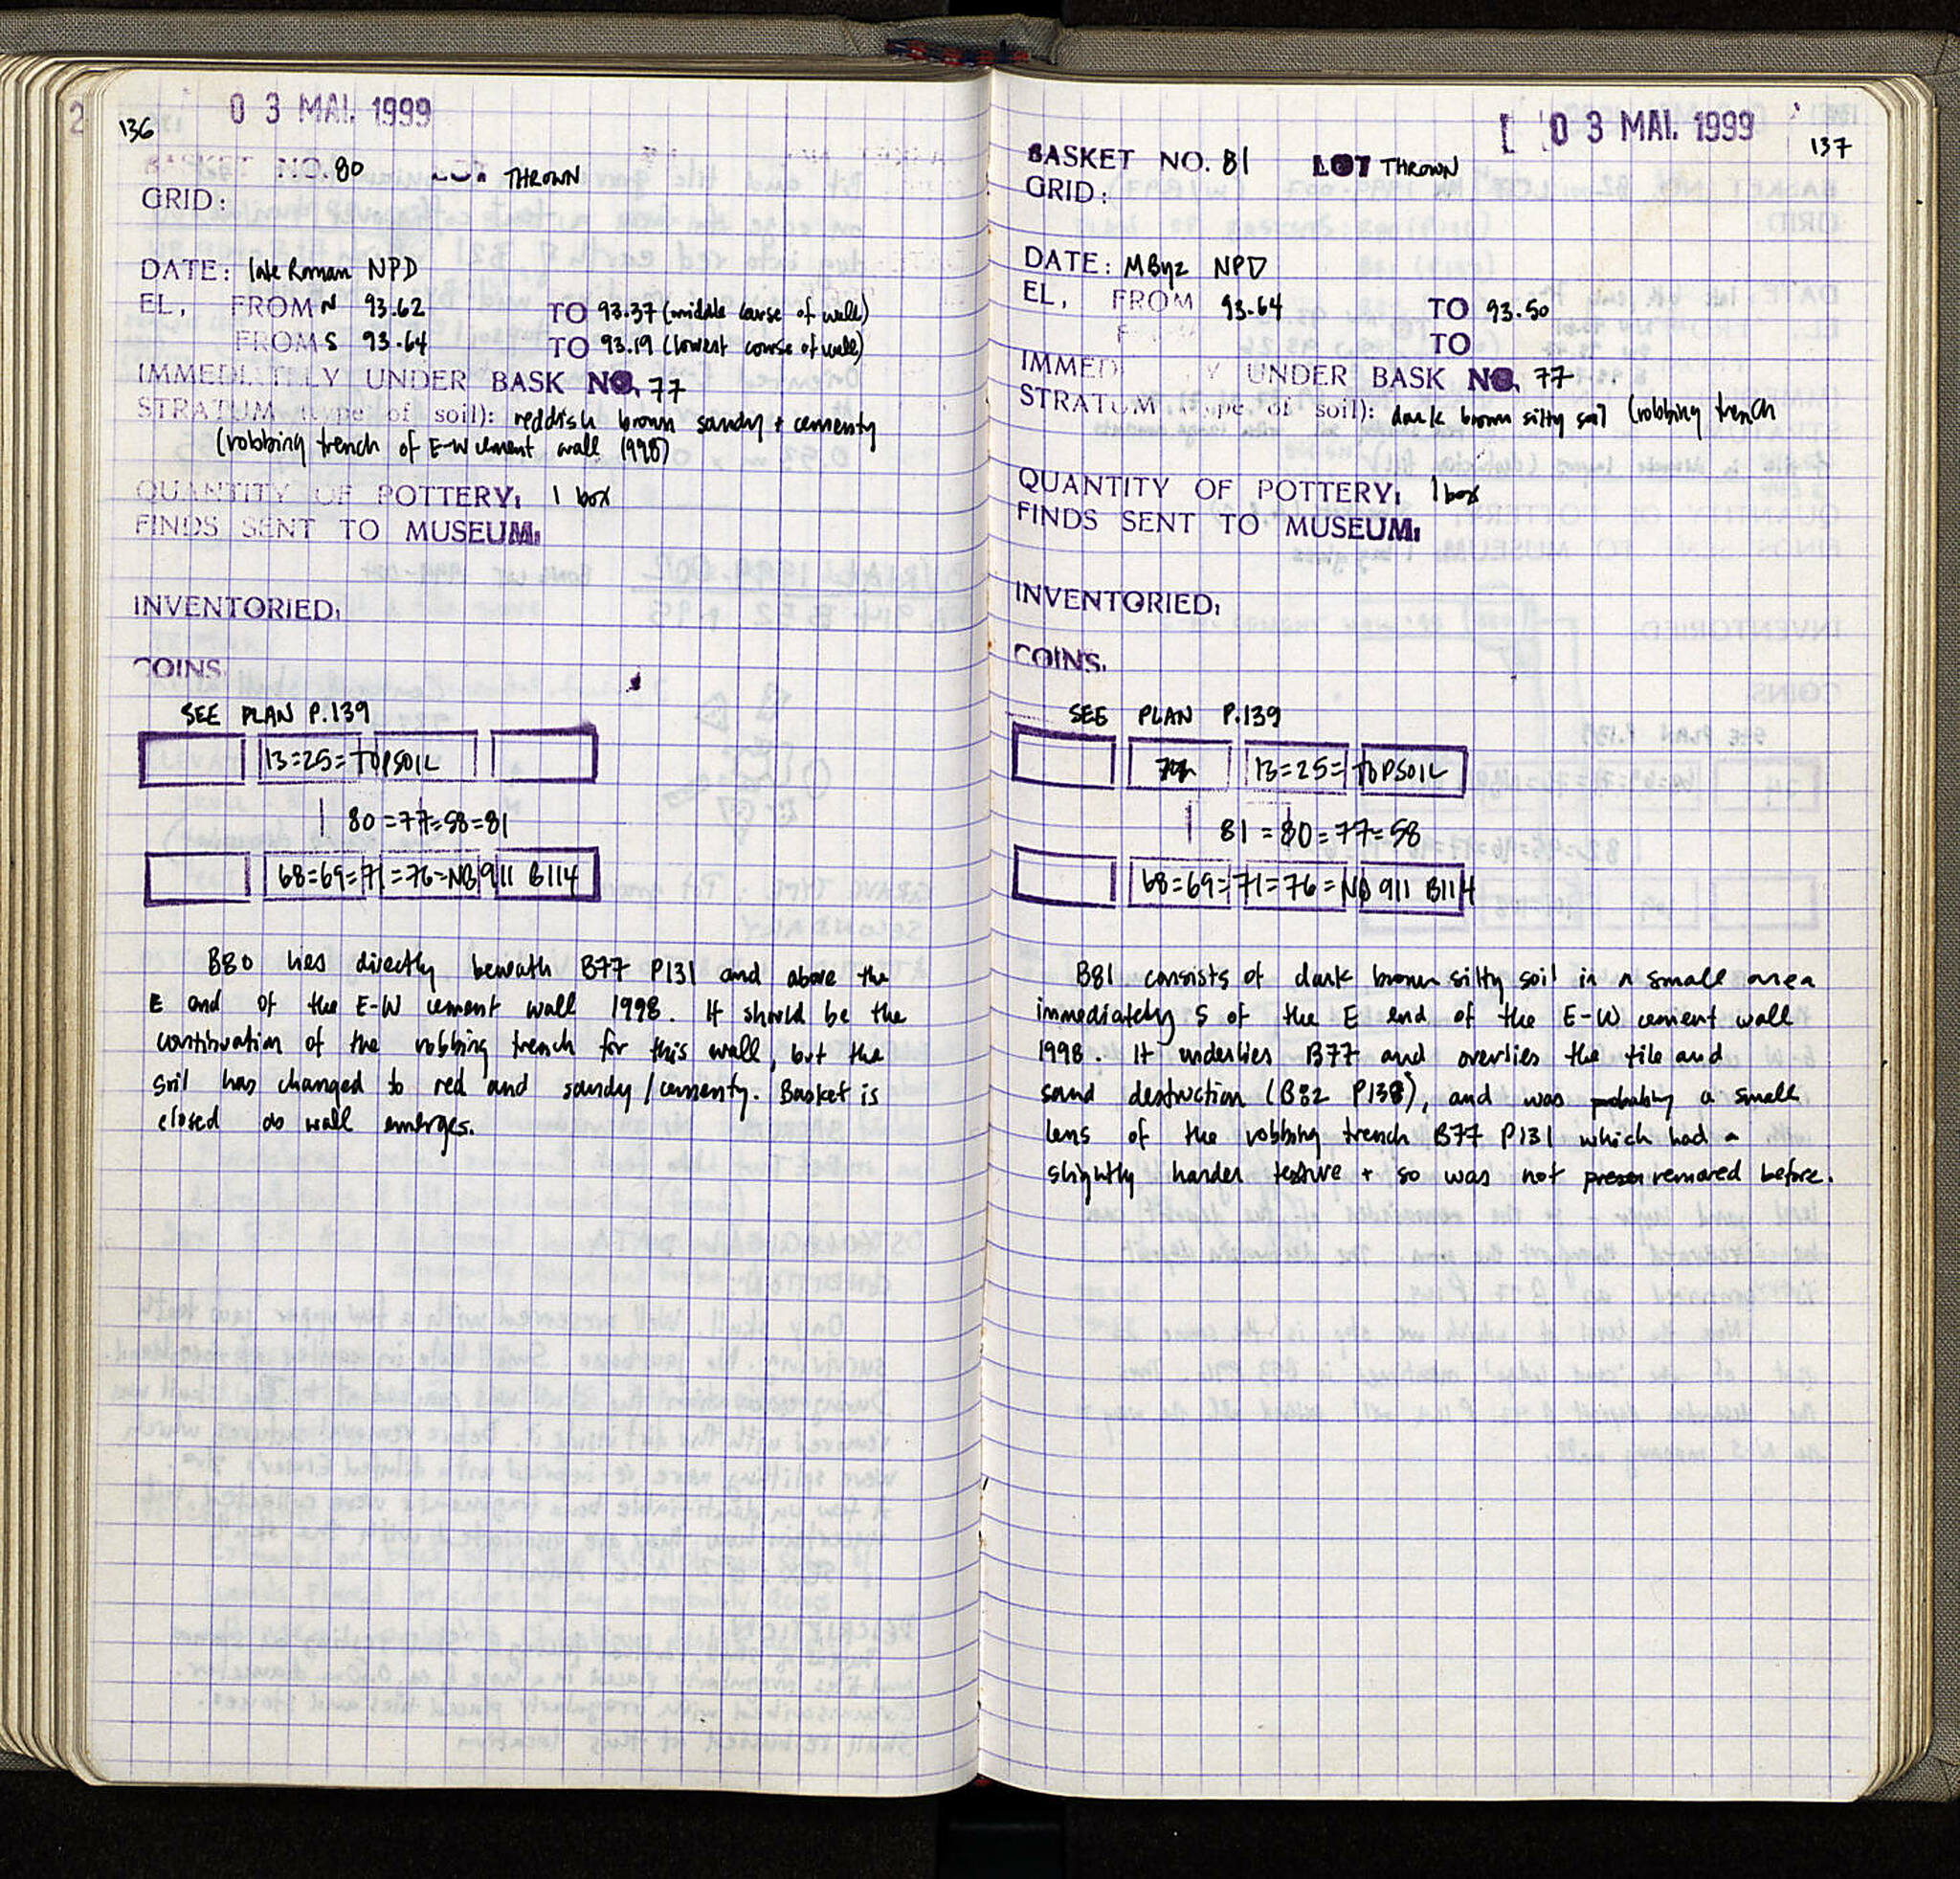 03 MAI. 1999
136
BASKET NO. 80 LOT THROWN
GRID:
DATE: late Roman NPD
EL, FROM N 93.62 TO 93.37 (middle course of wall)
FROM S 93.64 TO 93.19 (lowest course of wall)
IMMEDIATELY UNDER BASK NO. 77
STRATUM (type of soil): reddish brown sandy + cementy
(robbing trench of E-W cement wall 1998)
QUANTITY OF POTTERY: 1 box
FINDS SENT TO MUSEUM:
INVENTORIED:
COINS.
SEE PLAN P.139
13=25=TOPSOIL
80=77=58=81
68=69=71=76=NB 911 B114
B80 lies directly beneath B77 P131 and above the
E end of the E-W cement wall 1998. It should be the
continuation of the robbing trench for this wall, but the
soil has changed to red and sandy/cementy. Basket is
closed as wall emerges.
03 MAI. 1999
137
BASKET NO. 81 LOT THROWN
GRID:
DATE: MByz NPD
EL, FROM 93.64 TO 93.50
TO
IMMED Y UNDER BASK NO. 77
STRATUM (type of soil): dark brown silty soil (robbing trench
QUANTITY OF POTTERY: 1 box
FINDS SENT TO MUSEUM:
INVENTORIED:
COINS.
SEE PLAN P.139
13=25=TOPSOIL
81=80=77=58
68=69=71=76=NB 911 B114
B81 consists of dark brown silty soil in a small area
immediately S of the E end of the E-W cement wall
1998. It underlies B77 and overlies the tile and
sand destruction (B82 P138), and was probably a small
lens of the robbing trench B77 P131 which had a
slightly harder texture + so was not removed before.